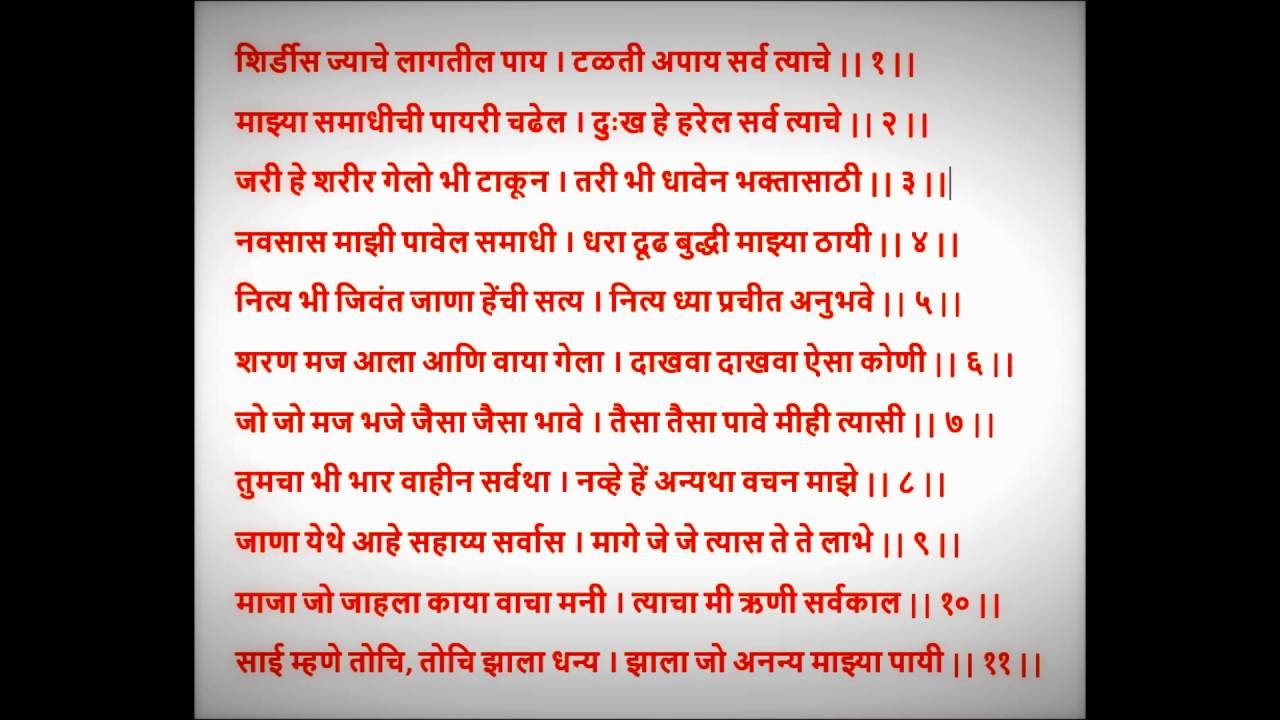 शिर्डीस ज्याचे लागतील पाय । टळती अपाय सर्व त्याचे || १ ||
माझ्या समाधीची पायरी चढेल । दुःख हे हरेल सर्व त्याचे || २ ||
जरी हे शरीर गेलो भी टाकून । तरी भी धावेन भक्तासाठी || ३ ||
नवसास माझी पावेल समाधी । धरा दूढ बुद्धी माझ्या ठायी || ४ ||
नित्य भी जिवंत जाणा हेंची सत्य । नित्य ध्या प्रचीत अनुभवे || ५ ||
शरण मज आला आणि वाया गेला । दाखवा दाखवा ऐसा कोणी || ६ ||
जो जो मज भजे जैसा जैसा भावे । तैसा तैसा पावे मीही त्यासी || ७ ||
तुमचा भी भार वाहीन सर्वथा । नव्हे हें अन्यथा वचन माझे || ८ ||
जाणा येथे आहे सहाय्य सर्वास । मागे जे जे त्यास ते ते लाभे || ९ ||
माजा जो जाहला काया वाचा मनी । त्याचा मी ऋणी सर्वकाल || १० ||
साई म्हणे तोचि, तोचि झाला धन्य । झाला जो अनन्य माझ्या पायी || ११ ||